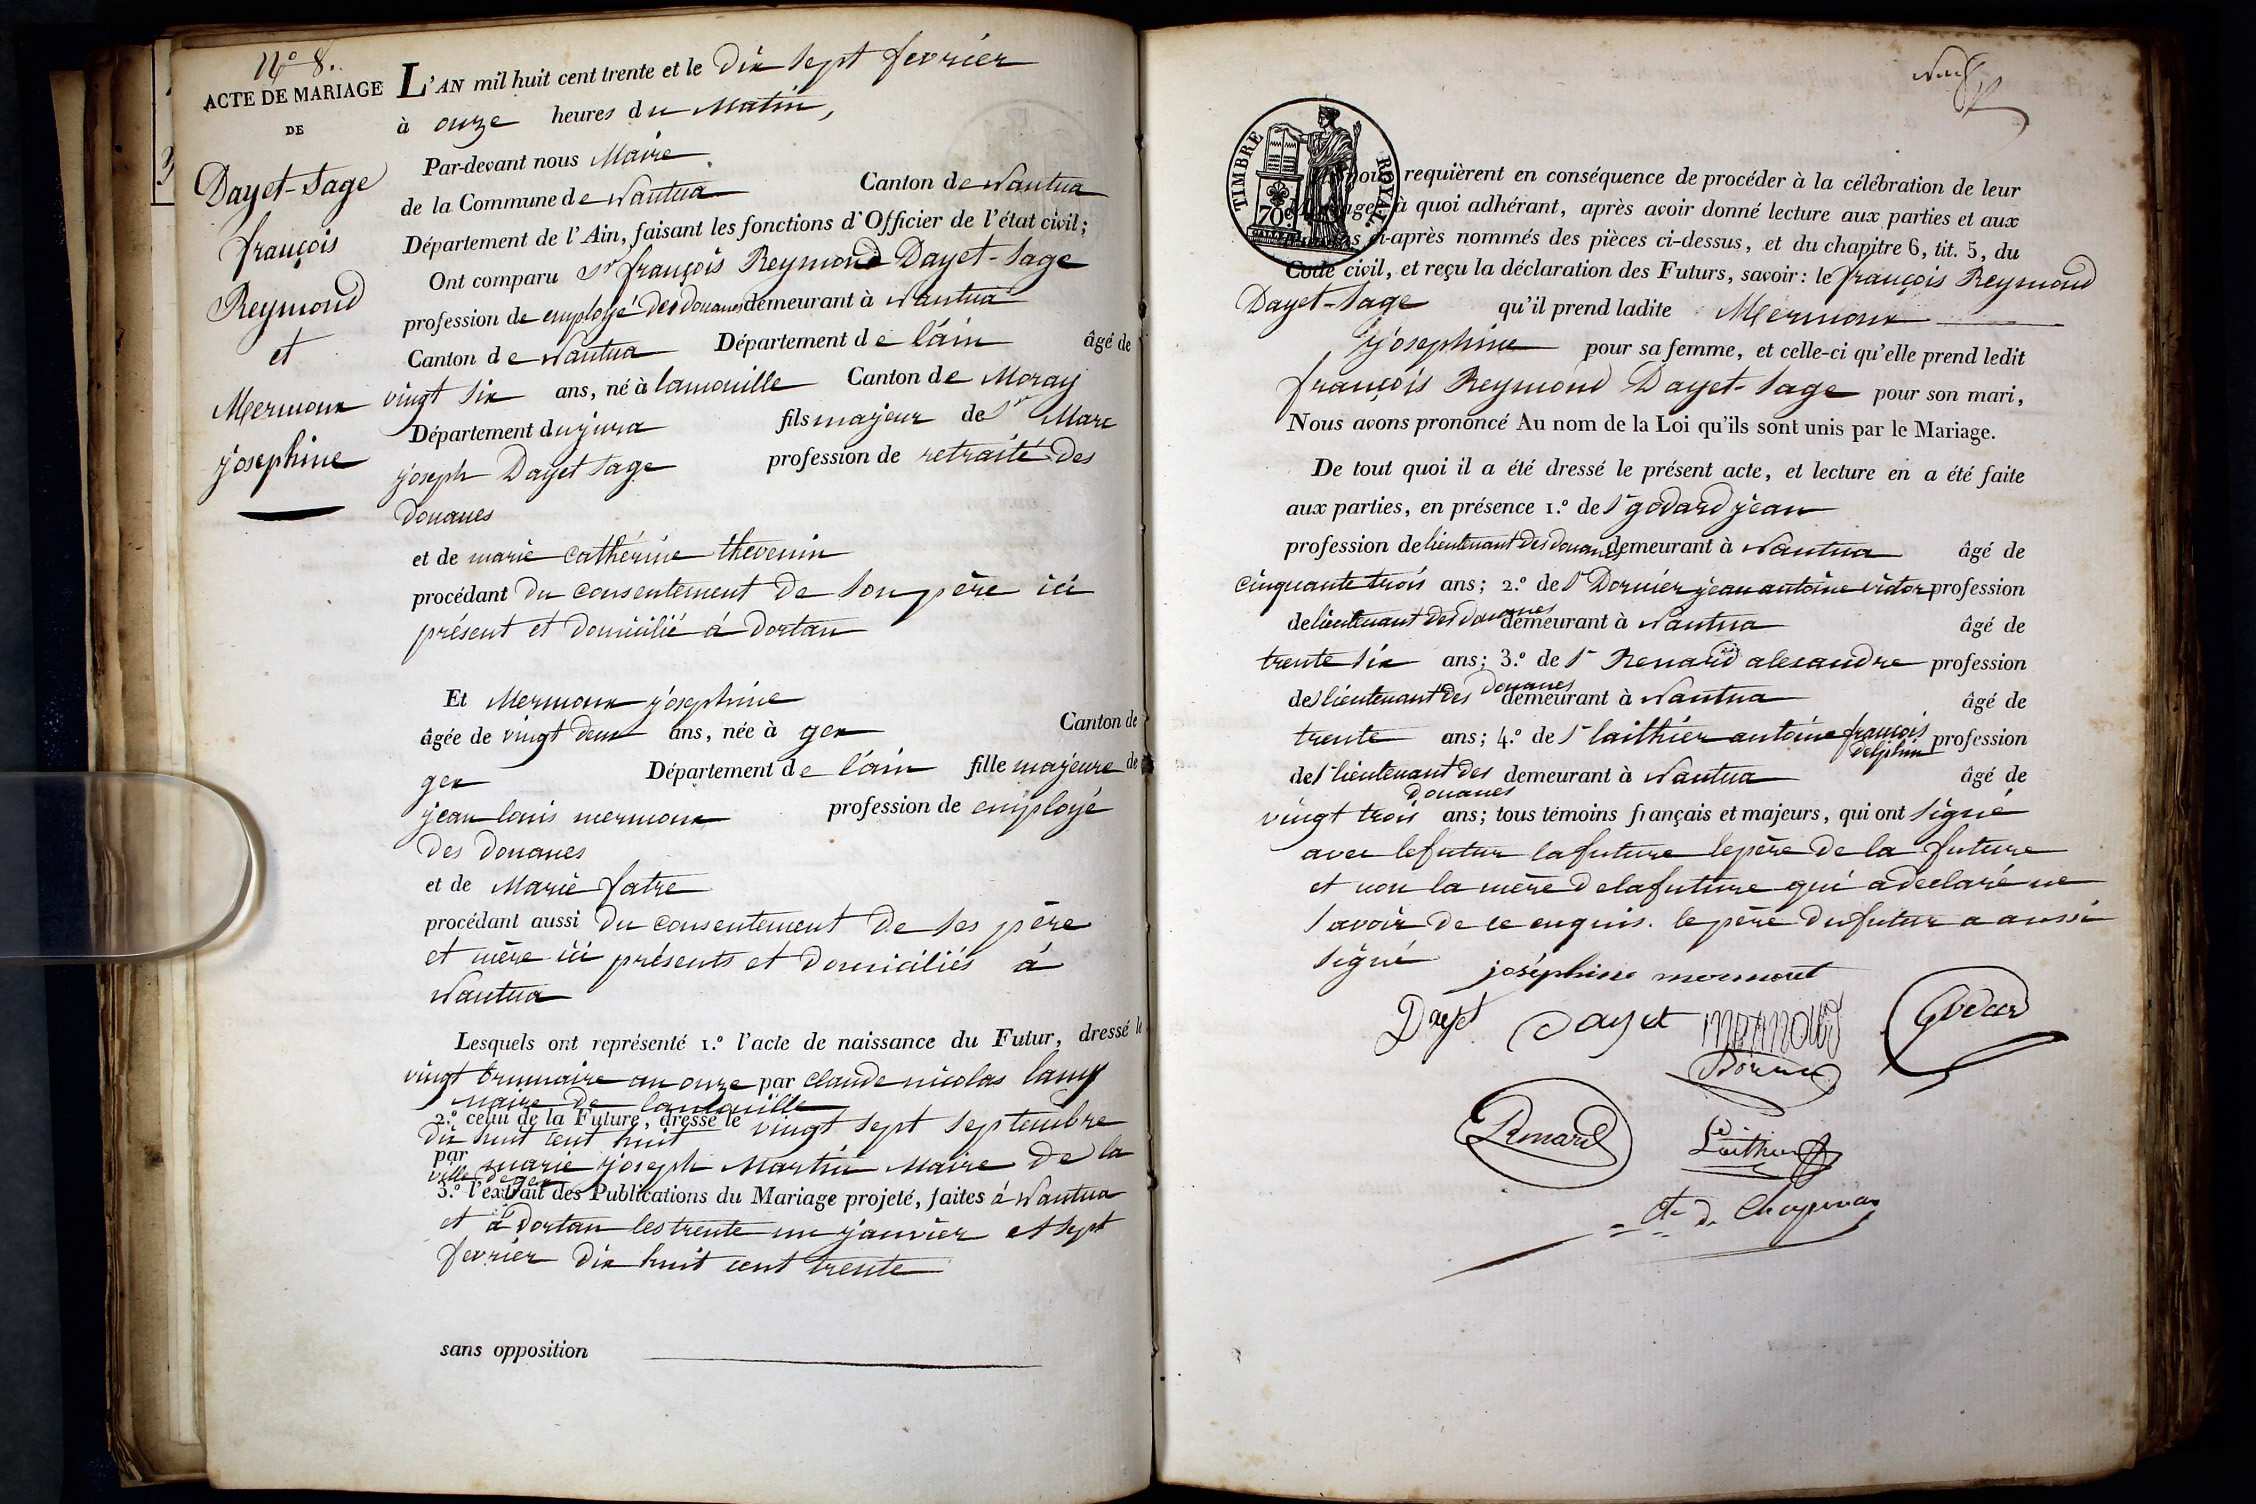 N.° 8.
ACTE DE MARIAGE
DE
Dayet-Sage
françois
Reymond
et
Mermoux
josephine
L'AN mil huit cent trente et le dix sept fevrier
à onze heures du Matin,
Par-devant nous Maire
de la Commune de Nantua Canton de Nantua
Département de l'Ain, faisant les fonctions d'Officier de l'état civil;
Ont comparu Sr françois Reymond Dayet-Sage
profession de employé des douanes demeurant à Nantua
Canton de Nantua Département de l'ain âgé de
vingt six ans, né à lamouille Canton de Moray
Département du jura fils majeur de Sr Marc
joseph Dayet Sage profession de retraité des
douanes
et de marie cathérine thevenin
procédant du consentement de son père ici
présent et domicilié à dortan
Et Mermoux josephine
âgée de vingt deux ans, née à gex Canton de
gex Département de l'ain fille majeure de
jean louis mermoux profession de employé
des douanes
et de Marie fatre
procédant aussi du consentement de ses père
et mère ici présents et domiciliés à
Nantua
Lesquels ont représenté 1.° l'acte de naissance du Futur, dressé le
vingt brumaire an onze par claude nicolas lamy
maire de lamouille
2.° celui de la Future, dressé le vingt sept septembre
dix huit cent huit
par marie joseph Martin Maire de la
ville de gex
3.° l'extrait des Publications du Mariage projeté, faites à Nantua
et à dortan les trente un janvier et sept
fevrier dix huit cent trente
sans opposition
neuf
TIMBRE ROYAL
70c
requièrent en conséquence de procéder à la célébration de leur
à quoi adhérant, après avoir donné lecture aux parties et aux
ci-après nommés des pièces ci-dessus, et du chapitre 6, tit. 5, du
Code civil, et reçu la déclaration des Futurs, savoir: le françois Reymond
Dayet-Sage qu'il prend ladite Mermoux
josephine pour sa femme, et celle-ci qu'elle prend ledit
françois Reymond Dayet-Sage pour son mari,
Nous avons prononcé Au nom de la Loi qu'ils sont unis par le Mariage.
De tout quoi il a été dressé le présent acte, et lecture en a été faite
aux parties, en présence 1.° de Sr godard jean
profession de lieutenant des douanes demeurant à Nantua âgé de
cinquante trois ans; 2.° de Sr Dornier jean antoine victor profession
de lieutenant des douanes demeurant à Nantua âgé de
trente six ans; 3.° de Sr Renard alexandre profession
de s lieutenant des douanes demeurant à Nantua âgé de
trente ans; 4.° de Sr laithier antoine françois delphin profession
de s lieutenant des douanes demeurant à Nantua âgé de
vingt trois ans; tous témoins français et majeurs, qui ont signé
avec le futur la future le père de la future
et non la mère de la future qui a declaré ne
savoir de ce enquis. le père du futur a aussi
signé
joséphine mermout
Dayet Dayet mermoud Godard
Dornier
Renard Laithier